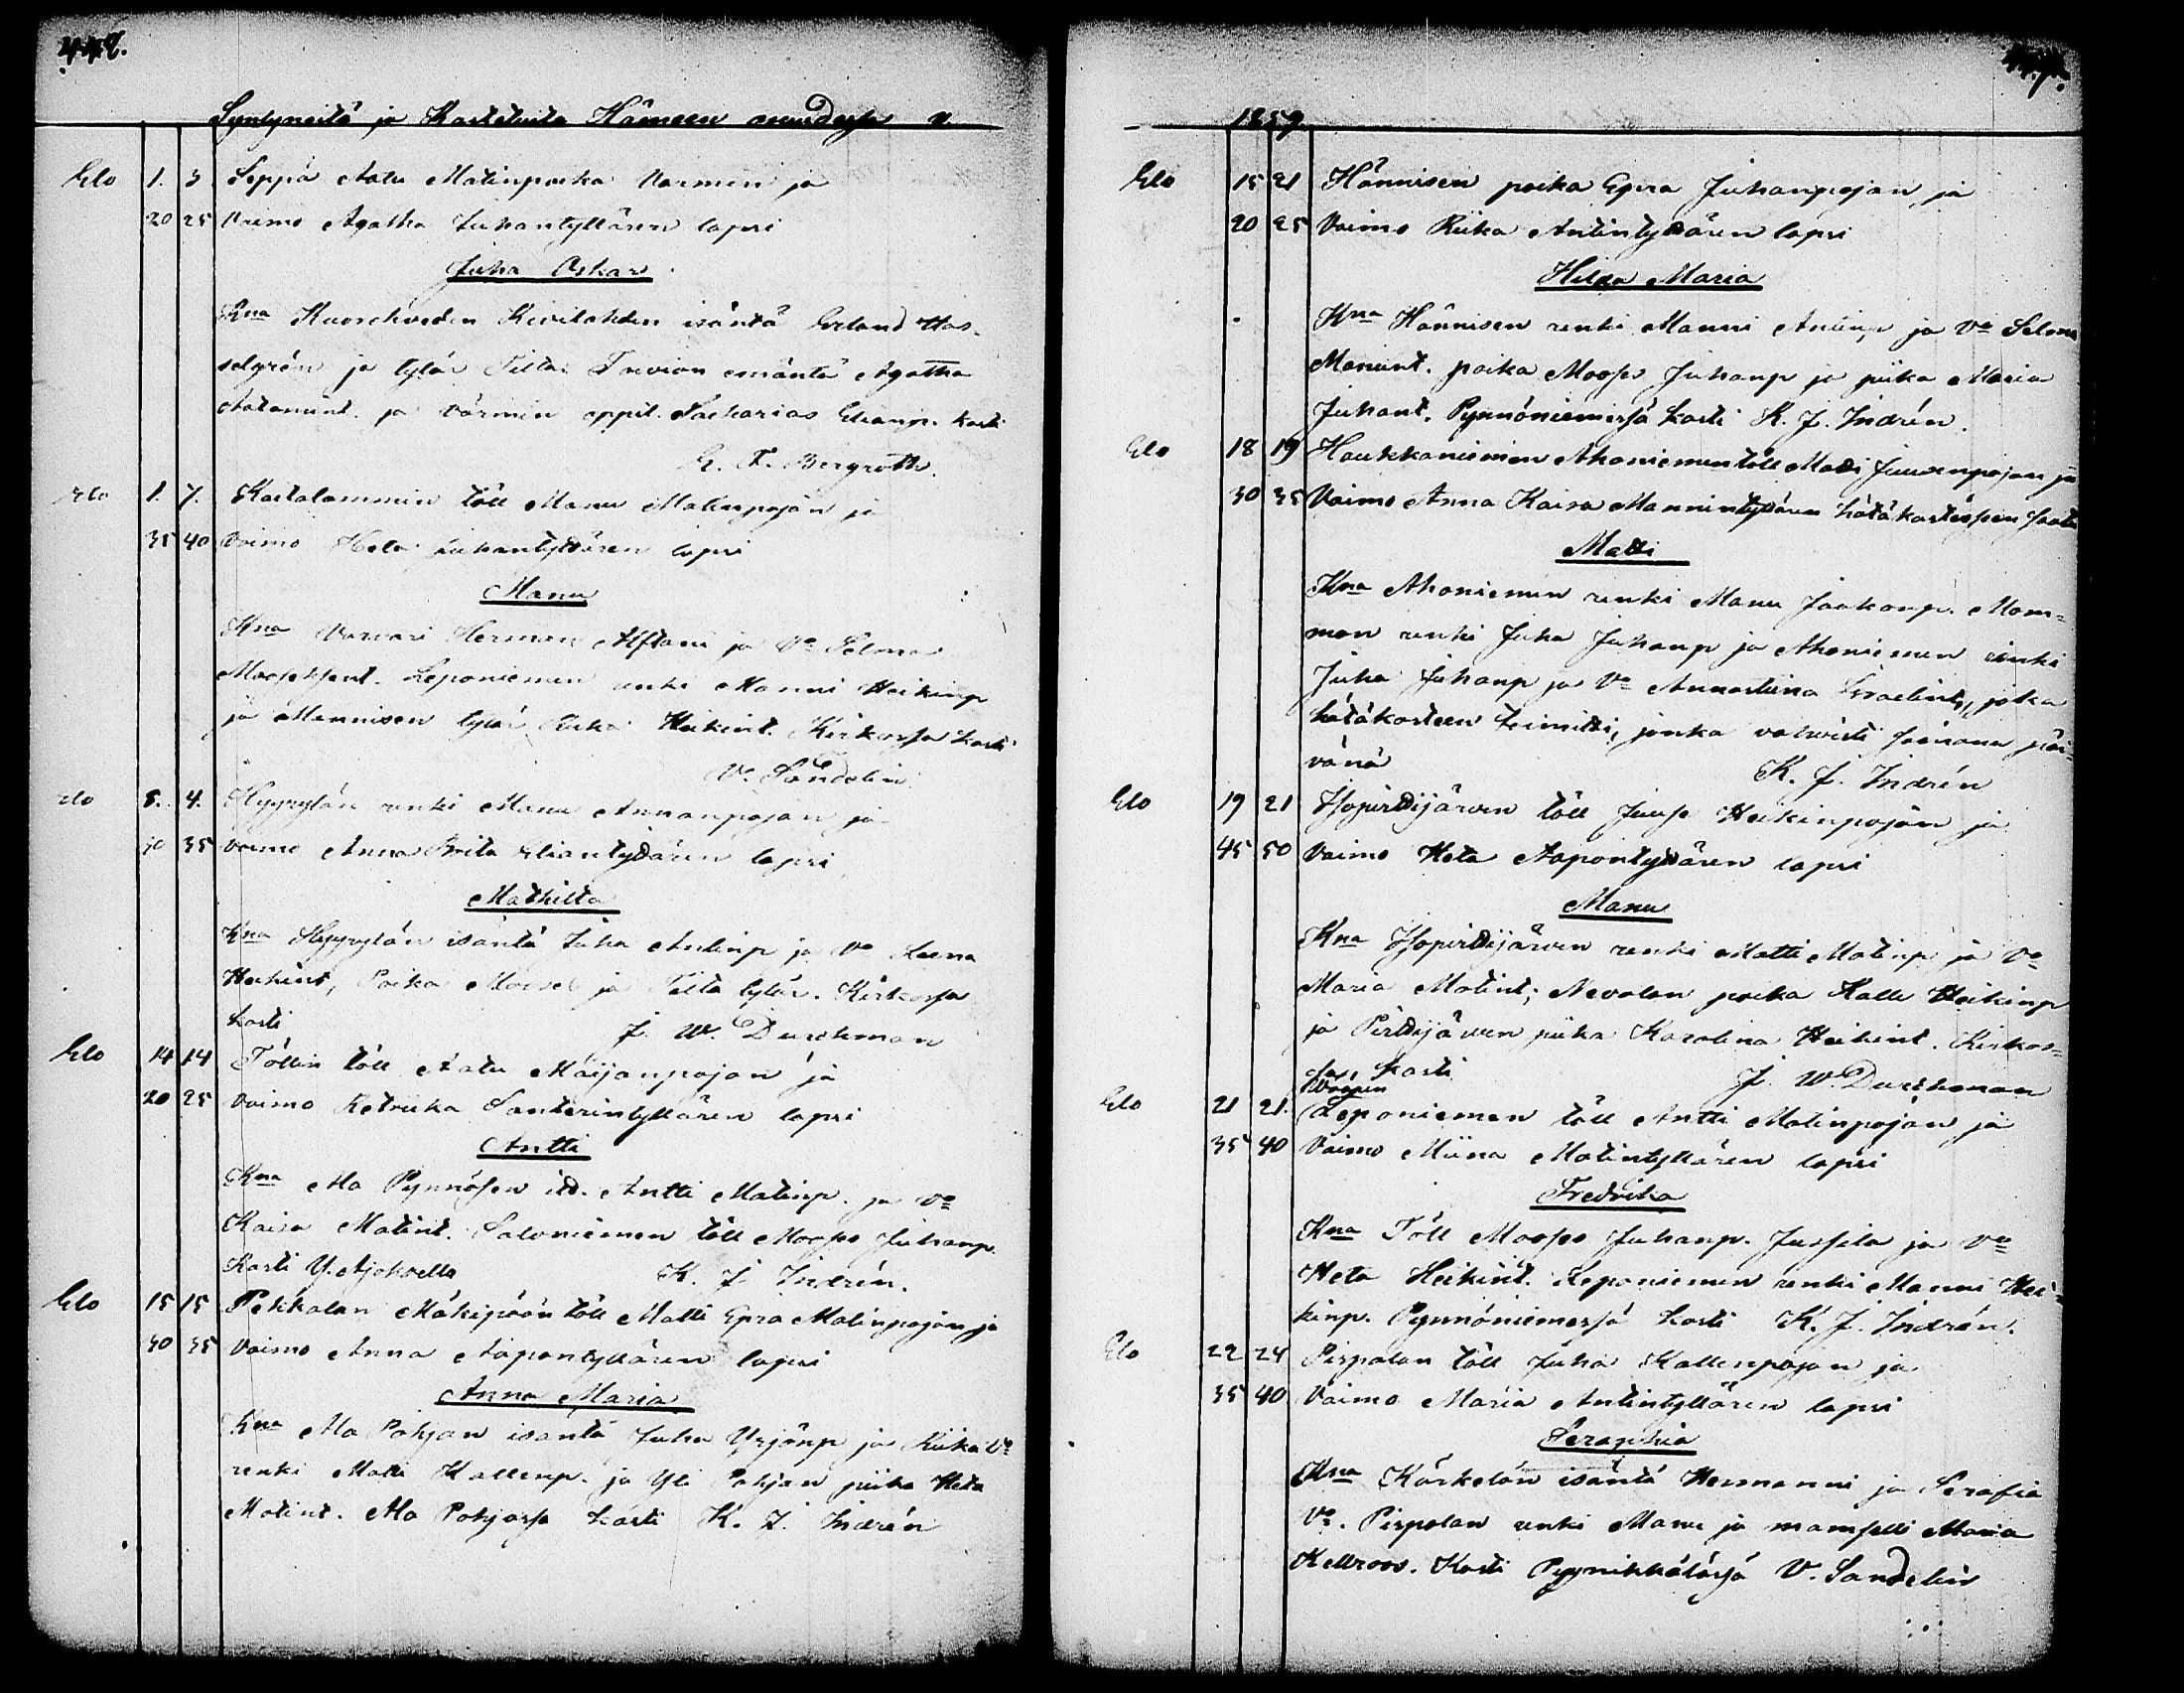 448.
Syntyneitä ja Kastetuita Hämeen v.
Elo 1. 3 Seppä Aatu Matinpoika Varmin ja
20 25 Vaimo Agatha Juhantyttären lapsi
Juha Oskar
Kna Kuorehveden Kivilahden isäntä Erland Has-
selgrén ja tytär Tilta emäntä Agatha
Aatamint. ja Värmin oppil. Sacharias Elianp. kasti
E. F. Bergroth.
Elo 1. 7. Kaitalammin töll Manu Matinpojan ja
35 40 Vaimo Heta Juhantyttären lapsi
Manu
Kna Varvari Herman Alftani ja Vo Selma
Moosekent. Leponiemen renki Manni Heikinp
ja Mennisen tytär Heikint. Kirkossa kasti
V. Sandelin
Elo 8. 4. Hyyrylän renki Manu Annanpojan ja
30 35 Vaimo Anna Brita Eliantyttären lapsi
Mathilta
Kna Hyyrylän isäntä Juha Antinp ja Vo Leena
Heikint, Poika Moses ja Tilta tytär. Kirkossa
kasti J. W. Durchman
Elo 14 14 Töllin töll Aatu Maijanpojan ja
20 25 Vaimo Ketruka Santerintyttären lapsi
Antti
Kna Ala Pynnösen itd. Antti Matinp. ja Vo
Kaisa Matint. Saloniemen töll Moses Juhanp.
Kasti Y. Ajokvella K. J. Indrén.
Elo 15 15 Pekkalan Mäkipään töll Matti Epra Matinpojan ja
30 35 Vaimo Anna Aapontyttären lapsi
Anna Maria
Kna Ala Pohjan isäntä Juha Yrjönp ja Riika Vo
renki Matti Kallenp. ja Yli Pohjan piika Heta
Matint. Ala Pohjassa kasti K. J. Indrén
1859.
Elo 15 21 Hännisen poika Epra Juhanpojan ja
20 25 Vaimo Riika Antintyttären lapsi
Hilda Maria
Kna Hännisen renki Manni Antinp ja Vo Selma
Manunt. poika Mooses Juhanp ja piika Maria
Juhant. Pynnöniemessä kasti K. J. Indrén.
Elo 18 19 Haukkaniemen Ahoniemen töll Matti Juusenpojan ja
30 35 Vaimo Anna Kaisa Mannintyttären hätäkasteesen saatu
Matti
Kna Ahoniemen renki Manu Jaakonp. Mom-
mon renki Juha Juhanp ja Ahoniemen renki
Juha Juhanp ja Vo Annastiina Israelint, joka
hätäkasteen toimitti, jonka vahvisti samana päi-
vänä K. J. Indrén
Elo 19 21 Isopirttijärven töll Juuse Heikinpojan ja
45 50 Vaimo Heta Aapontyttären lapsi
Manu
Kna Isopirttijärven renki Matti Matinp ja Vo
Maria Matint; Nevalan poika Kalle Heikinp
ja Pirttijärven piika Karolina Heikint. Kirkos-
sa, kasti J. W Durchman
Elo 21 21. Leponiemen töll Antti Matinpojan ja
35 40 Vaimo Miina Matintyttären lapsi
Fredrika
Kna Töll Mooses Juhanp. Jussila ja Vo
Heta Heikint. Leponiemen renki Manni Hei-
kinp. Pynnöniemessä kasti K. J. Indrén.
Elo 22 24 Pirpolan töll Juha Kallenpojan ja
35 40 Vaimo Maria Antintyttären lapsi
Seraphia
Kna Kärkelän isäntä Hermanni ja Serafia
Vo. Pirpolan renki Manu ja mamselli Maria
Kellroos. Kasti Pyynikkälässä V. Sandelin